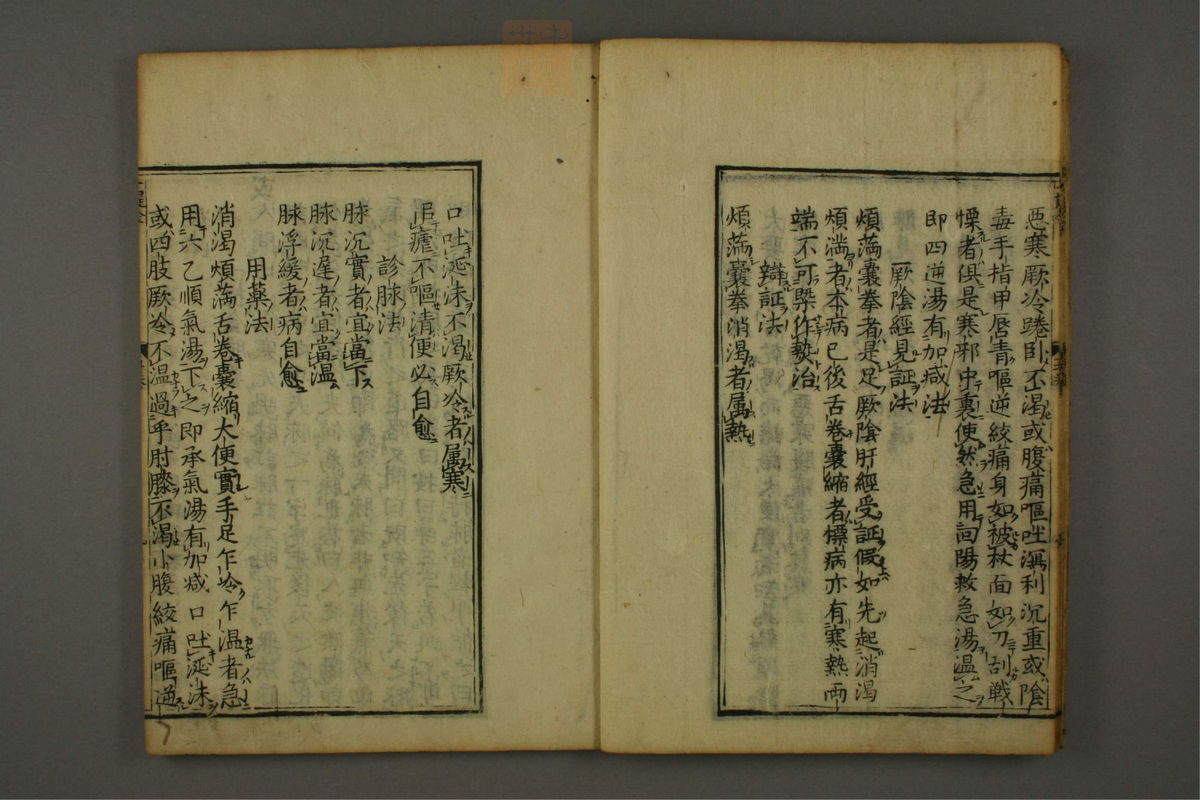 惡寒厥冷踡卧不渴或腹痛嘔吐瀉利沉重或陰
毒手指甲唇青嘔逆絞痛身如被杖面如刀刮戰
慄者俱是寒邪中裏使然急用回陽救急湯温之
即四逆湯有加减法
厥陰經見証法
煩滿囊拳者是足厥陰肝經受証假如先起消渴
煩滿者本病已後舌卷囊縮者標病亦有寒熱兩
端不可槩作熱治
辯証法
煩滿囊拳消渴者属熱
口吐涎沫不渴厥冷者属寒
似瘧不嘔清便必自愈
診脉法
脉沉實者宜當下
脉沉遲者宜當温
脉浮緩者病自愈
用藥法
消渴煩滿舌卷囊縮大便實手足乍冷乍温者急
用六乙順氣湯下之即承氣湯有加减口吐涎沫
或四肢厥冷不温過乎肘膝不渴小腹絞痛嘔逆